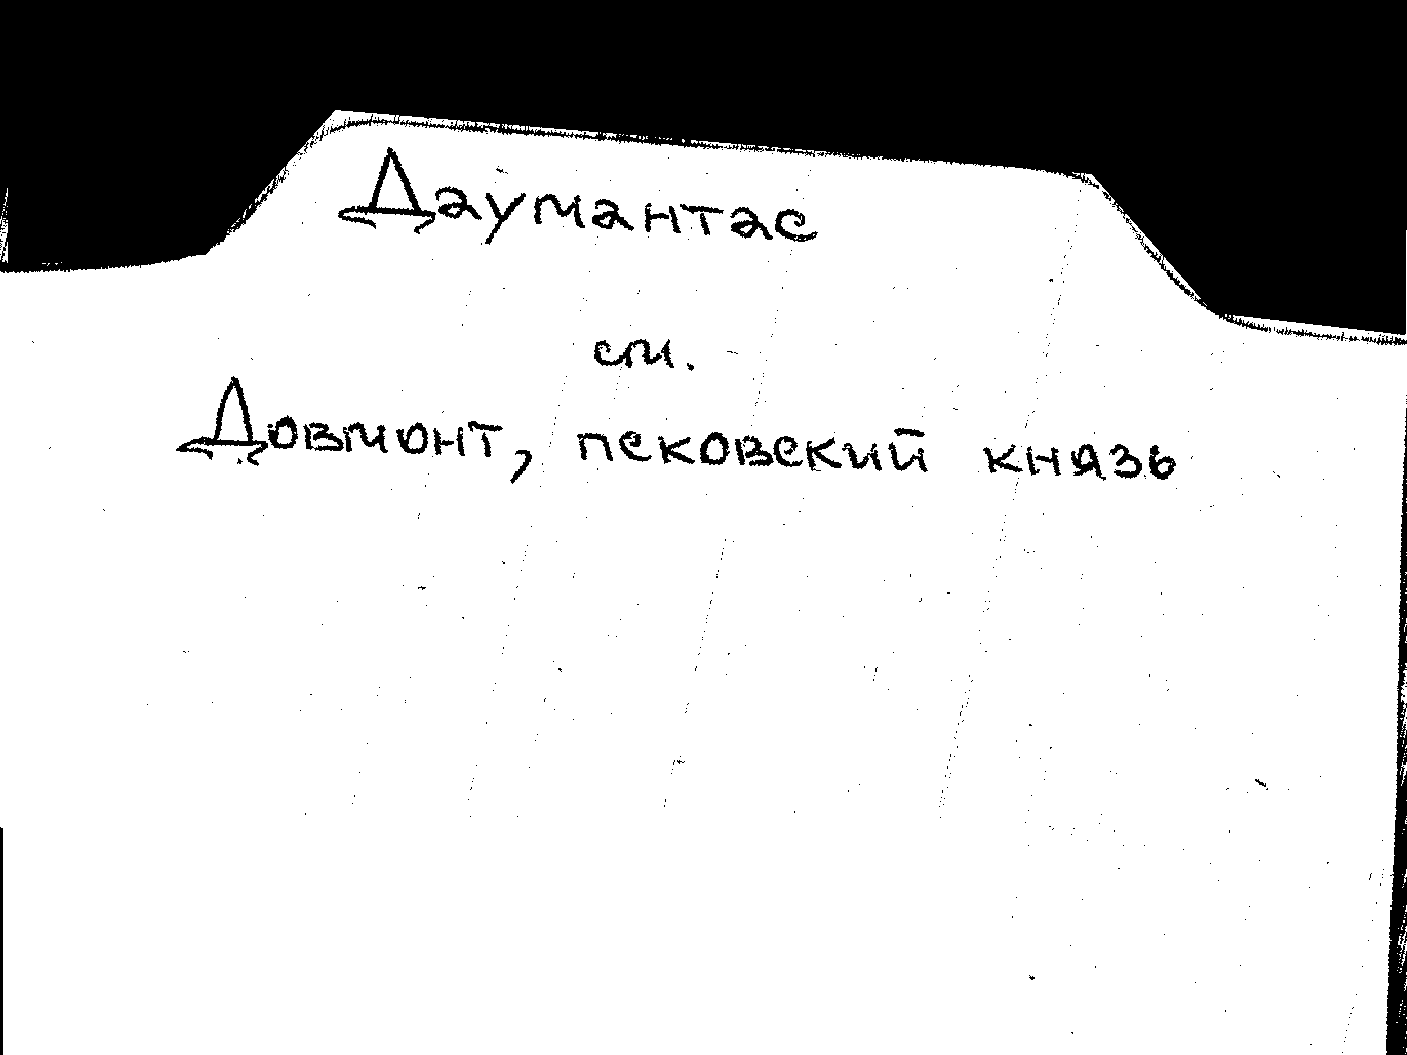 Даумантас
см.
Довмонт, псковский князь